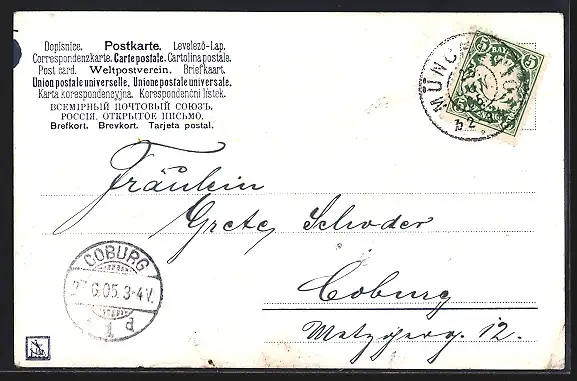 Dopisnice. Postkarte. Levelezö-Lap.
Correspondenzkarte. Carte postale. Cartolina postale.
Post card. Weltpostverein. Briefkaart.
Union postale universelle. Unione postale universale.
Karta korespondencyjna. Korespondenční lístek.
ВСЕМІРНЫЙ ПОЧТОВЫЙ СОЮЗЪ.
РОССІЯ. ОТКРЫТОЕ ПИСЬМО.
Brefkort. Brevkort. Tarjeta postal.
5 BAYERN 5
MÜNCHEN
Fräulein
Grete Schoder
COBURG
6.05. 3-4V.
1 d
Coburg
Metzgerg. 12.